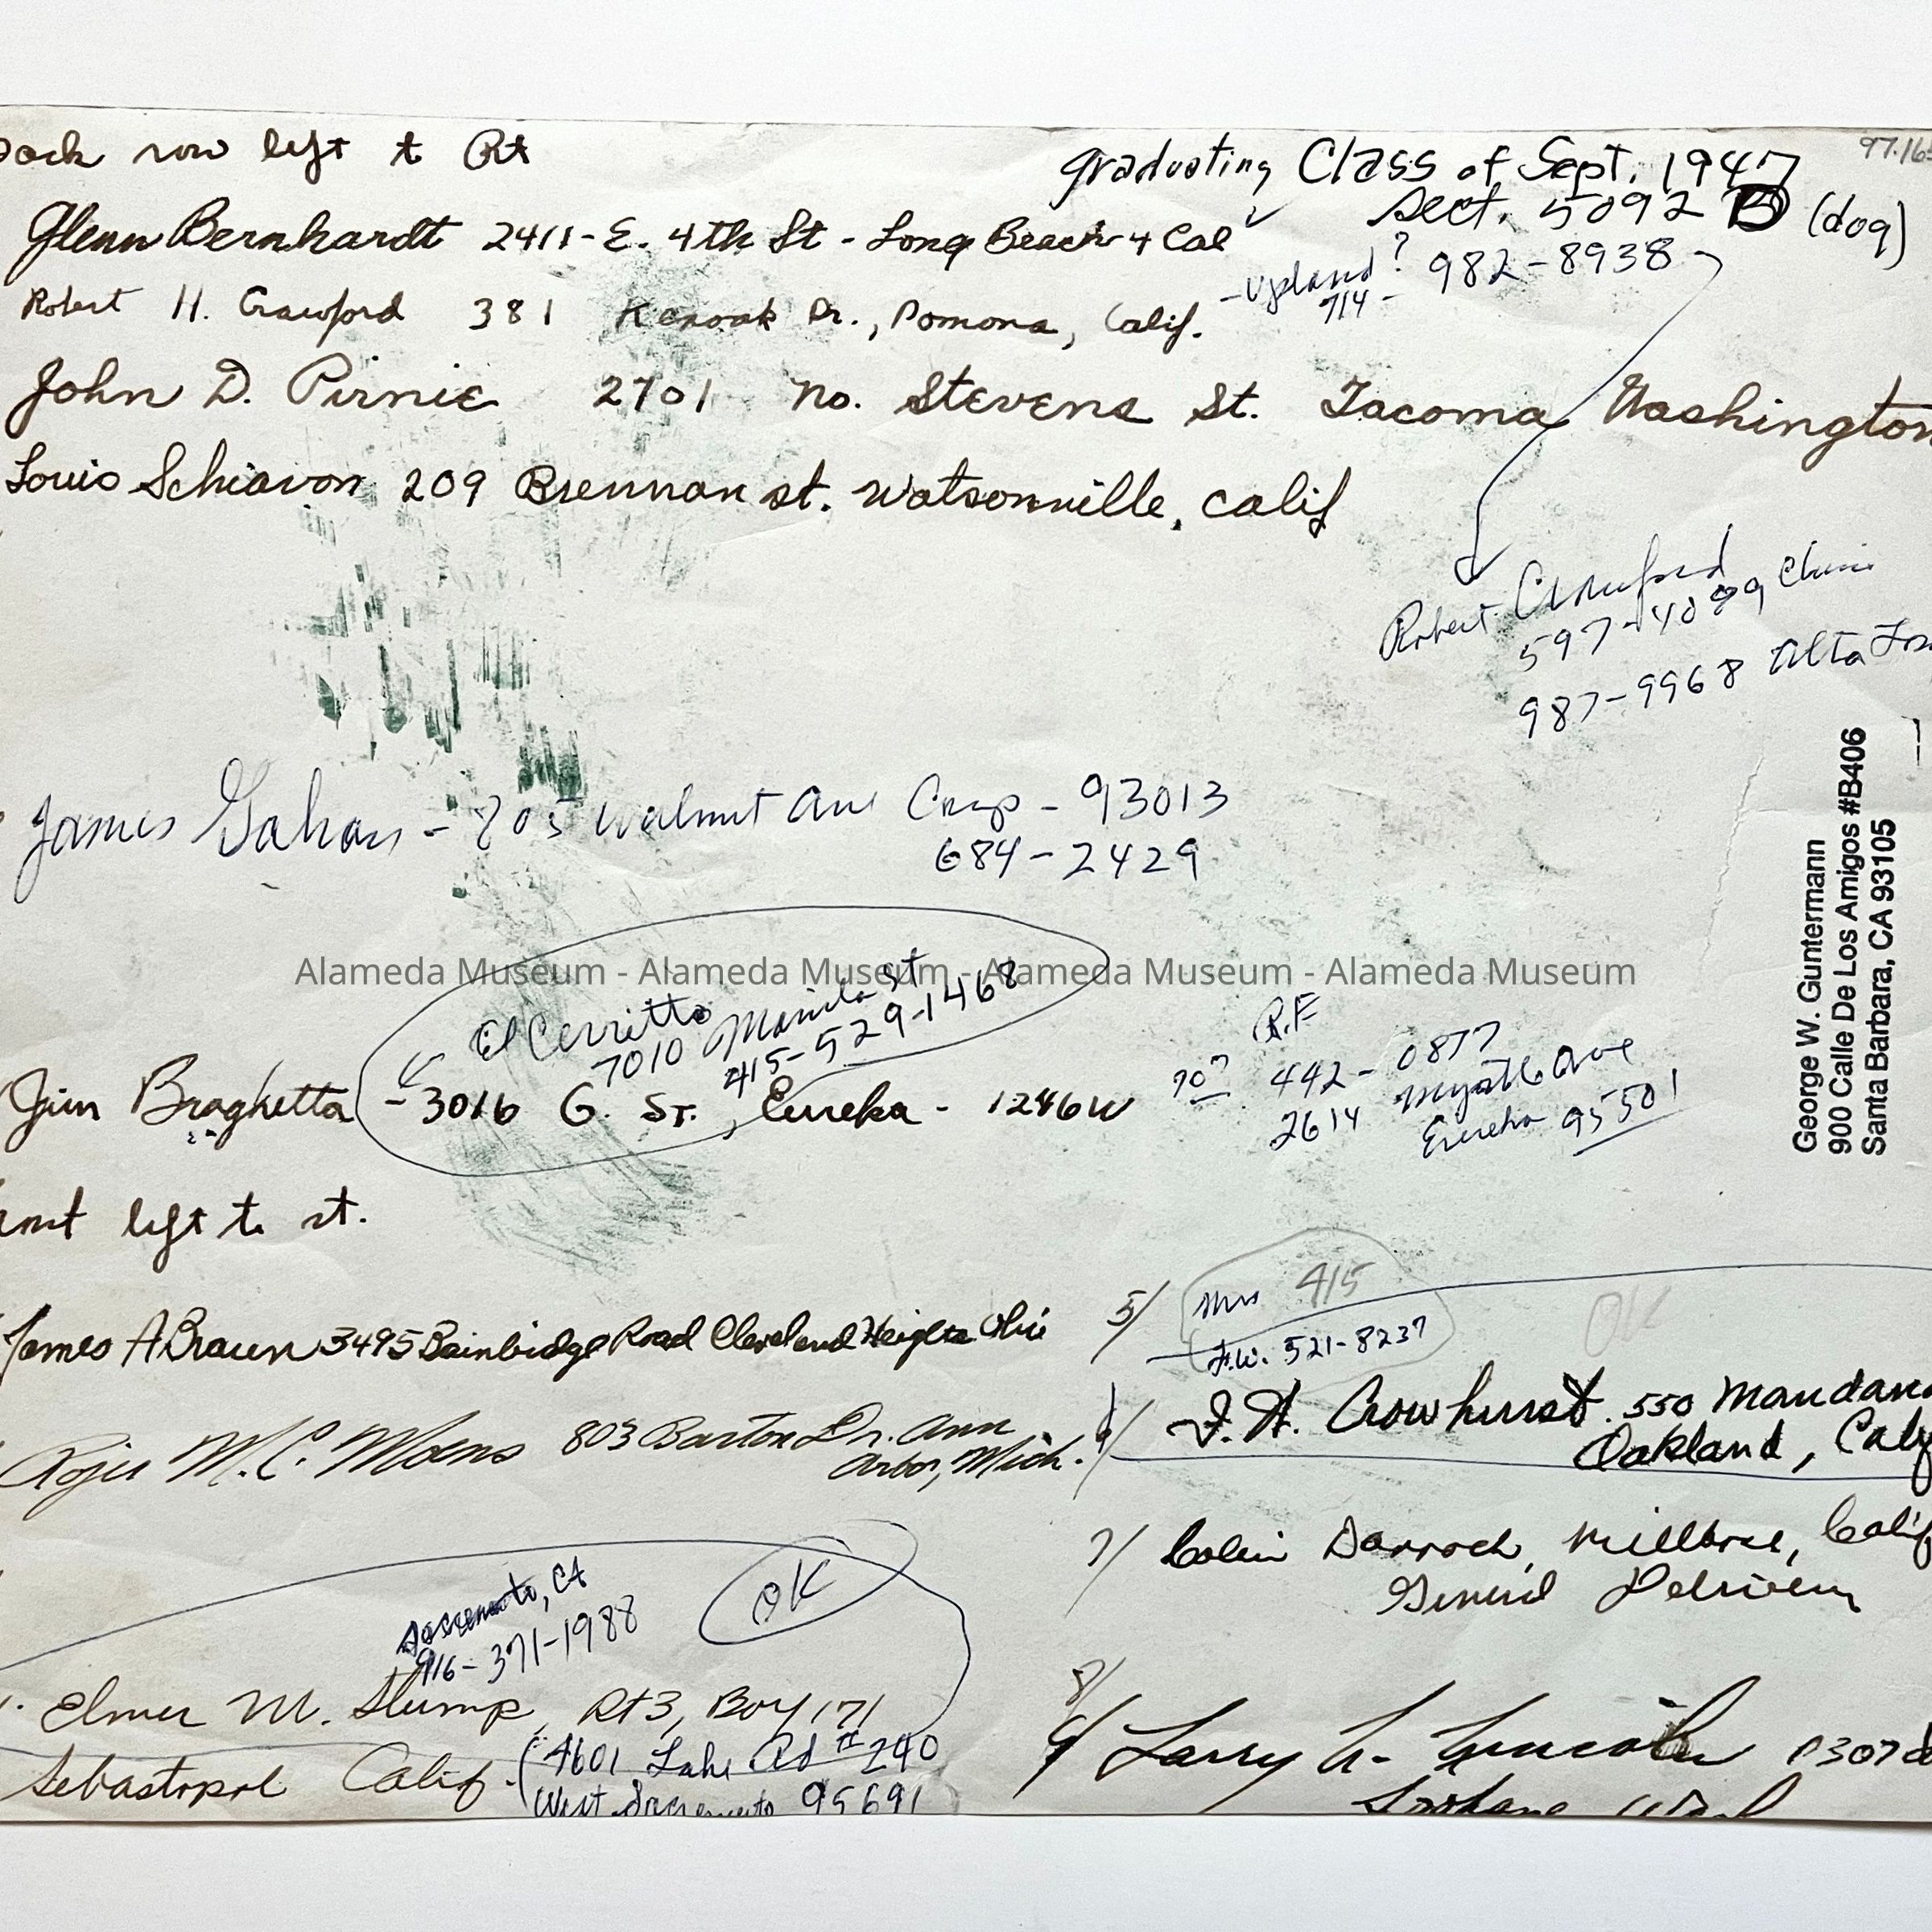 row left to Rt
graduating Class of Sept. 1947
Sect. 5092 D (dog)
97.16
Glenn Bernhardt 2411-E. 4th St - Long Beach 4 Cal
-Upland? 982-8938
714-
Robert H. Crawford 381 Kenoak Dr., Pomona, Calif.
John D. Pirnie 2701 No. Stevens St. Tacoma Washington
Louis Schiavon 209 Brennan st. Watsonville, Calif
Robert Crawford
597-4099 Chino
987-9968 Alta
James Gahan - 805 Walnut Ave Carp - 93013
684-2429
George W. Guntermann
900 Calle De Los Amigos #B406
Santa Barbara, CA 93105
Alameda Museum - Alameda Museum - Alameda Museum - Alameda Museum
El Cerritto
7010 Manila St
415-529-1468
Jim Braghetta - 3016 G. St. Eureka - 1246W
442-0877
2614 Myrtle Ave
Eureka 95501
left to rt.
James A Braun 3495 Bainbridge Road Cleveland Heights Ohio
Roger M.C. Moens 803 Barton Dr. Ann
Arbor, Mich.
5/ Mrs 415
F.W. 521-8237
OK
6/ F. W. Crowhurst. 550 Mandana
Oakland, Calif
7/ Colin Darroch, Millbrae, Calif
General Delivery
Sacramento, CA
916-371-1988
OK
Elmer M. Stump, Rt 3, Box 171
Sebastopol Calif. (4601 Lake Rd #240
West Sacramento 95691
8/
9/ Larry L. Lincoln
Spokane Wash